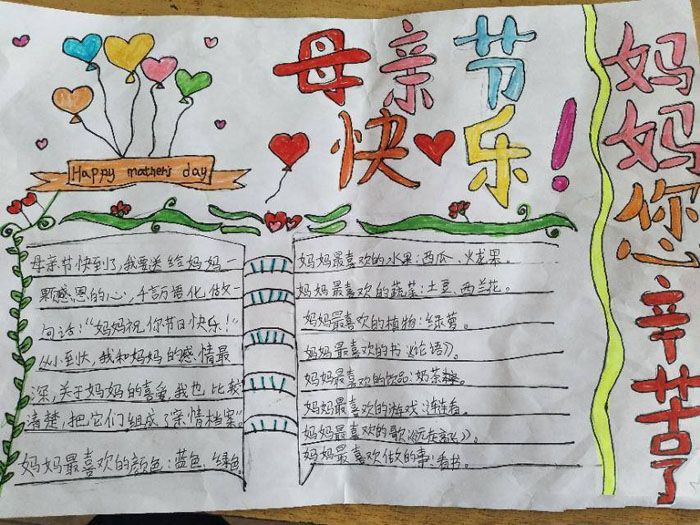 母亲节
快乐！
妈妈你辛苦了
Happy mother's day
母亲节快到了，我要送给妈妈一
颗感恩的心，千言万语化做一
句话：“妈妈祝你节日快乐！”
从小到大，我和妈妈的感情最
深，关于妈妈的喜爱，我也比较
清楚，把它们组成了“亲情档案”。
妈妈最喜欢的颜色：蓝色、绿色。
妈妈最喜欢的水果：西瓜、火龙果。
妈妈最喜欢的蔬菜：土豆、西兰花。
妈妈最喜欢的植物：绿萝。
妈妈最喜欢的书《论语》。
妈妈最喜欢的饮品：奶茶
妈妈最喜欢的游戏：连连看。
妈妈最喜欢的歌
妈妈最喜欢做的事：看书。